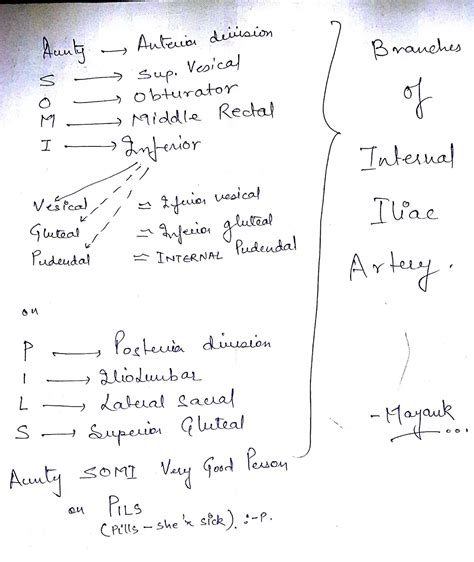 Aunty → Anterior division
S → Sup. Vesical
O → Obturator
M → Middle Rectal
I → Inferior
Vesical = Inferior vesical
Gluteal = Inferior gluteal
Pudendal = INTERNAL Pudendal
on
P → Posterior division
I → Iliolumbar
L → Lateral Sacral
S → Superior Gluteal
Aunty SOMI Very Good Person
on PILS
(Pills - she's sick). :-P.
Branches
of
Internal
Iliac
Artery.
- Mayank...